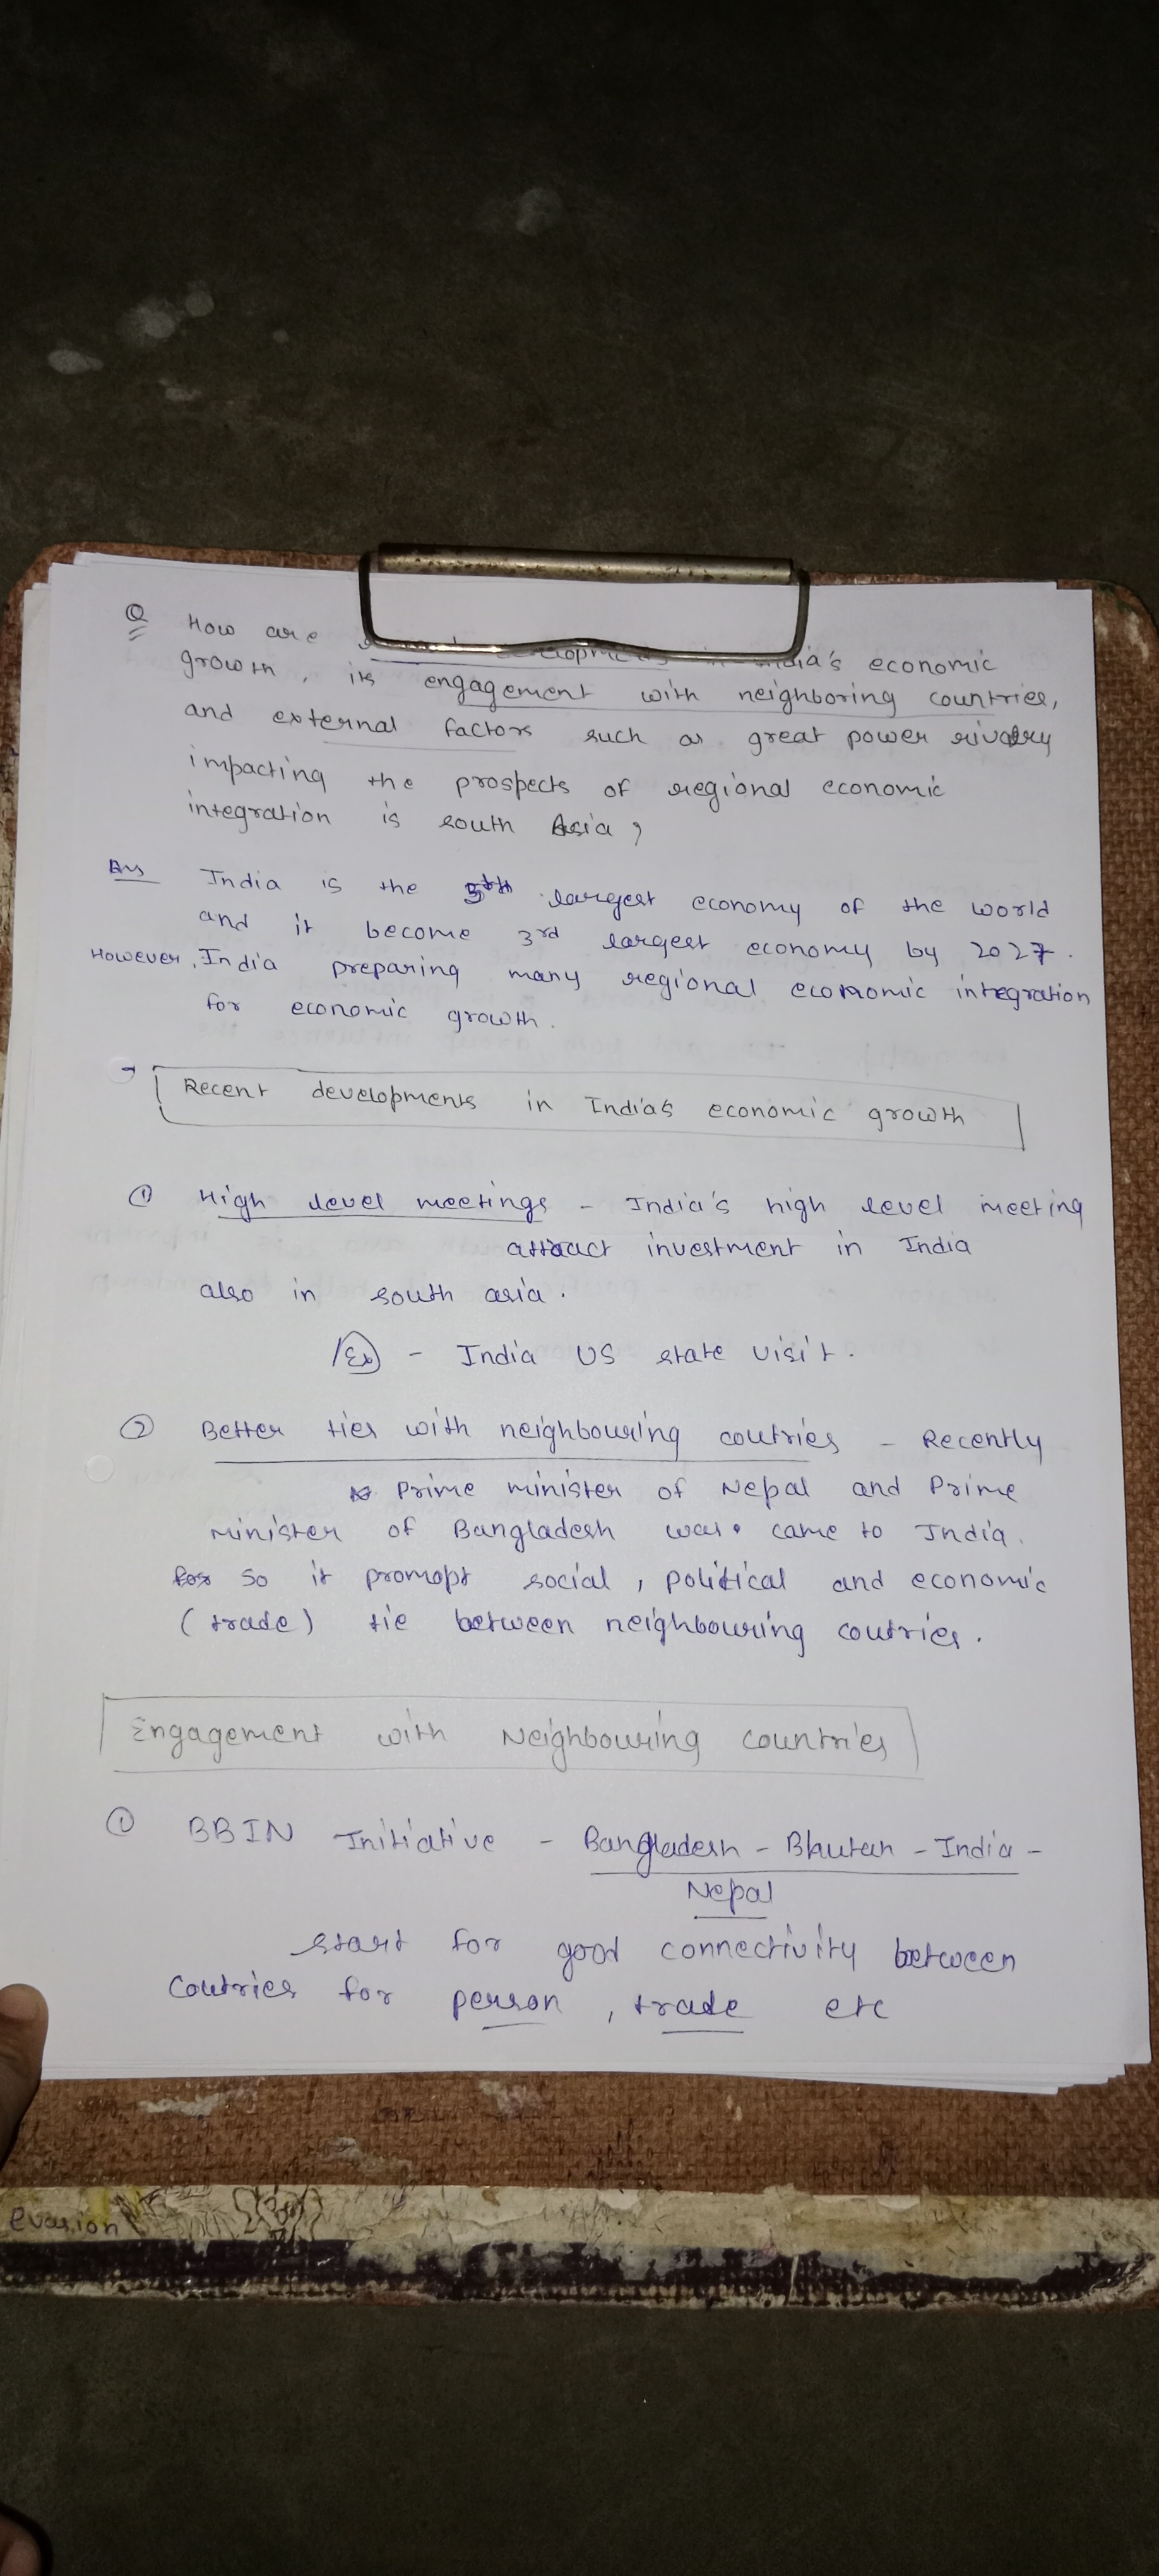 Q How are in India's economic
growth, its engagement with neighboring countries,
and external factors such as great power rivalry
impacting the prospects of regional economic
integration is south Asia ?
Ans India is the 5th largest economy of the world
and it become 3rd largest economy by 2027.
However, India preparing many regional economic integration
for economic growth.
→ Recent developments in India's economic growth
① High level meetings - India's high level meeting
attract investment in India
also in south asia.
Ex - India US state visit.
② Better ties with neighbouring coutries - Recently
Prime minister of Nepal and Prime
minister of Bangladesh came to India.
so it promopt social, political and economic
(trade) tie between neighbouring coutries.
Engagement with Neighbouring countries
① BBIN Initiative - Bangladesh - Bhutan - India -
Nepal
start for good connectivity between
coutries for person, trade etc
evasion